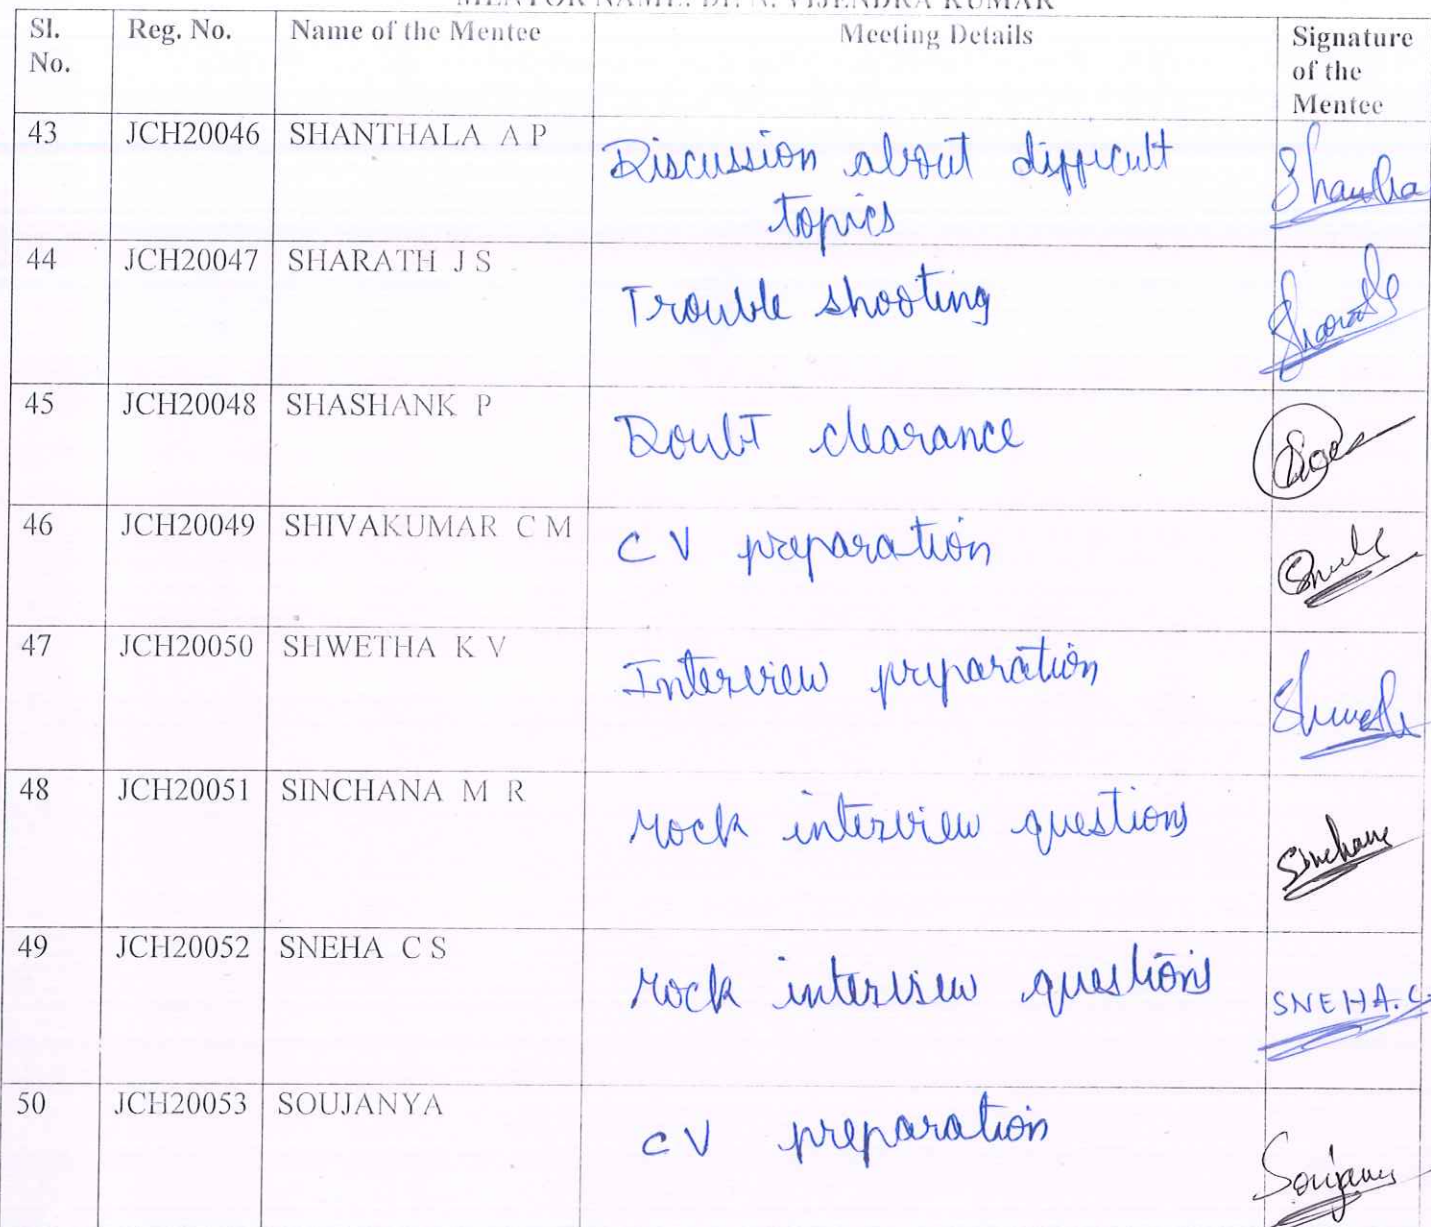 MENTOR NAME: Dr. A. VIJENDRA KUMAR
Sl. No. Reg. No. Name of the Mentee Meeting Details Signature of the Mentee
43 JCH20046 SHANTHALA A P Discussion about difficult topics
44 JCH20047 SHARATH J S Trouble shooting Sharath
45 JCH20048 SHASHANK P Doubt clearance
46 JCH20049 SHIVAKUMAR C M CV preparation
47 JCH20050 SHWETHA K V Interview preparation
48 JCH20051 SINCHANA M R Mock interview questions Sinchana
49 JCH20052 SNEHA C S Mock interview questions SNEHA.C.
50 JCH20053 SOUJANYA CV preparation Soujanya